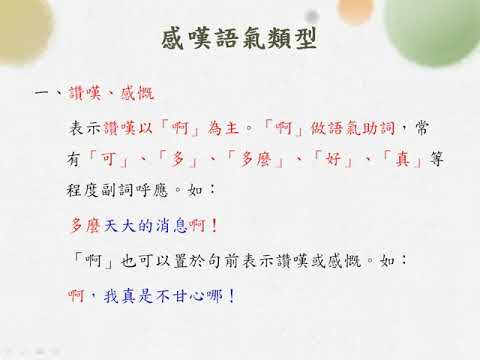 感嘆語氣類型
一、讚嘆、感慨
表示讚嘆以「啊」為主。「啊」做語氣助詞，常
有「可」、「多」、「多麼」、「好」、「真」等
程度副詞呼應。如：
多麼天大的消息啊！
「啊」也可以置於句前表示讚嘆或感慨。如：
啊，我真是不甘心哪！